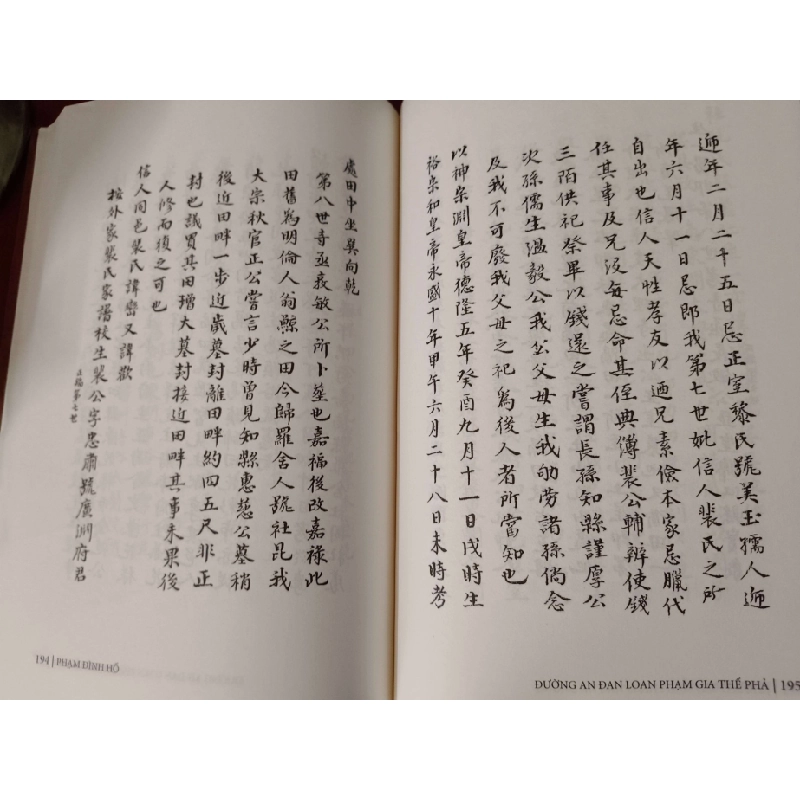 處田中坐巽向乾
第八世寺丞義敏公所卜塋也嘉福後改嘉祿此
田舊為明倫人翁鯨之田今歸羅舍人號社昆我
大宗秋官正公嘗言少時曾見知縣惠慈公墓稍
後近田畔一步近歲墓封離田畔約四五尺非正
封也議買其田增大墓封接近田畔其事未果後
人修而復之可也
信人同邑裴氏諱密又諱歡
正編第七世
按外家裴氏家譜校生裴公字忠肅號廣淵府君
194 | PHẠM ĐÌNH HỔ
迎年二月二十五日忌正室黎氏號美玉孺人迎
年六月十一日忌即我第七世妣信人裴氏之所
自出也信人天性孝友以迺兄素儉本家忌臘代
任其事及兄沒每忌命其侄典傅裴公輔辦使錢
三陌供祀祭畢以錢還之嘗謂長孫知縣謹厚公
次孫儒生溫毅公我公父母生我劬勞諸孫倘念
及我不可廢我父母之祀為後人者所當知也
以神宗淵皇帝德隆五年癸酉九月十一日戌時生
裕宗和皇帝永盛十年甲午六月二十八日未時考
DƯỠNG AN ĐAN LOAN PHẠM GIA THẾ PHẢ | 195